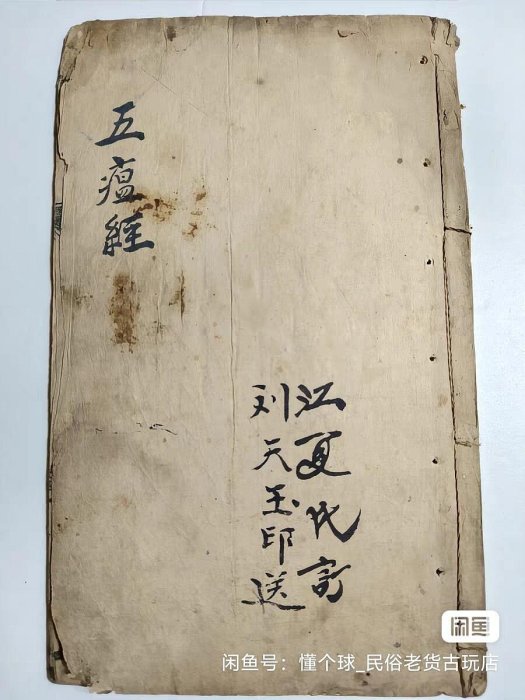 五瘟經
江夏氏訂
刘天玉印送
闲鱼
闲鱼号：懂个球_民俗老货古玩店